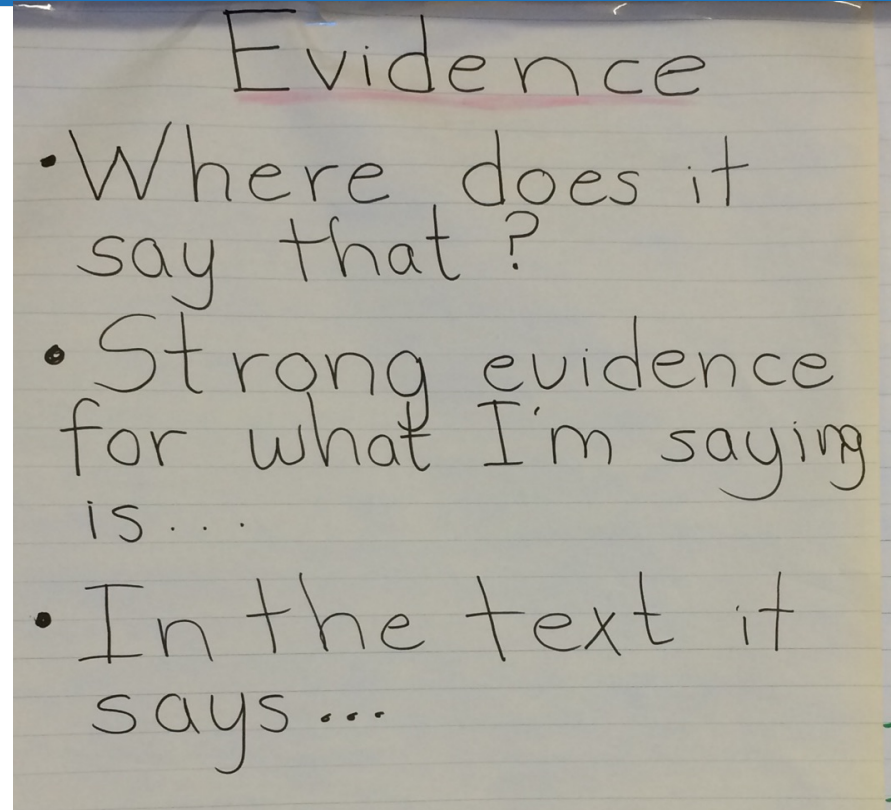 Evidence
• Where does it
say that?
• Strong evidence
for what I'm saying
is...
• In the text it
says...